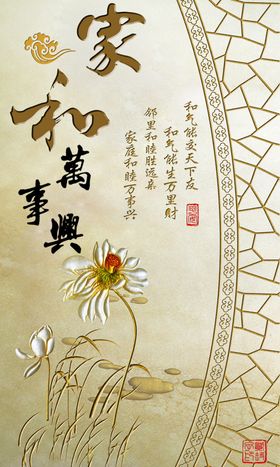 家和
萬事興
和气能交天下友
和气能生万里財
邻里和睦胜远亲
家庭和睦万事兴